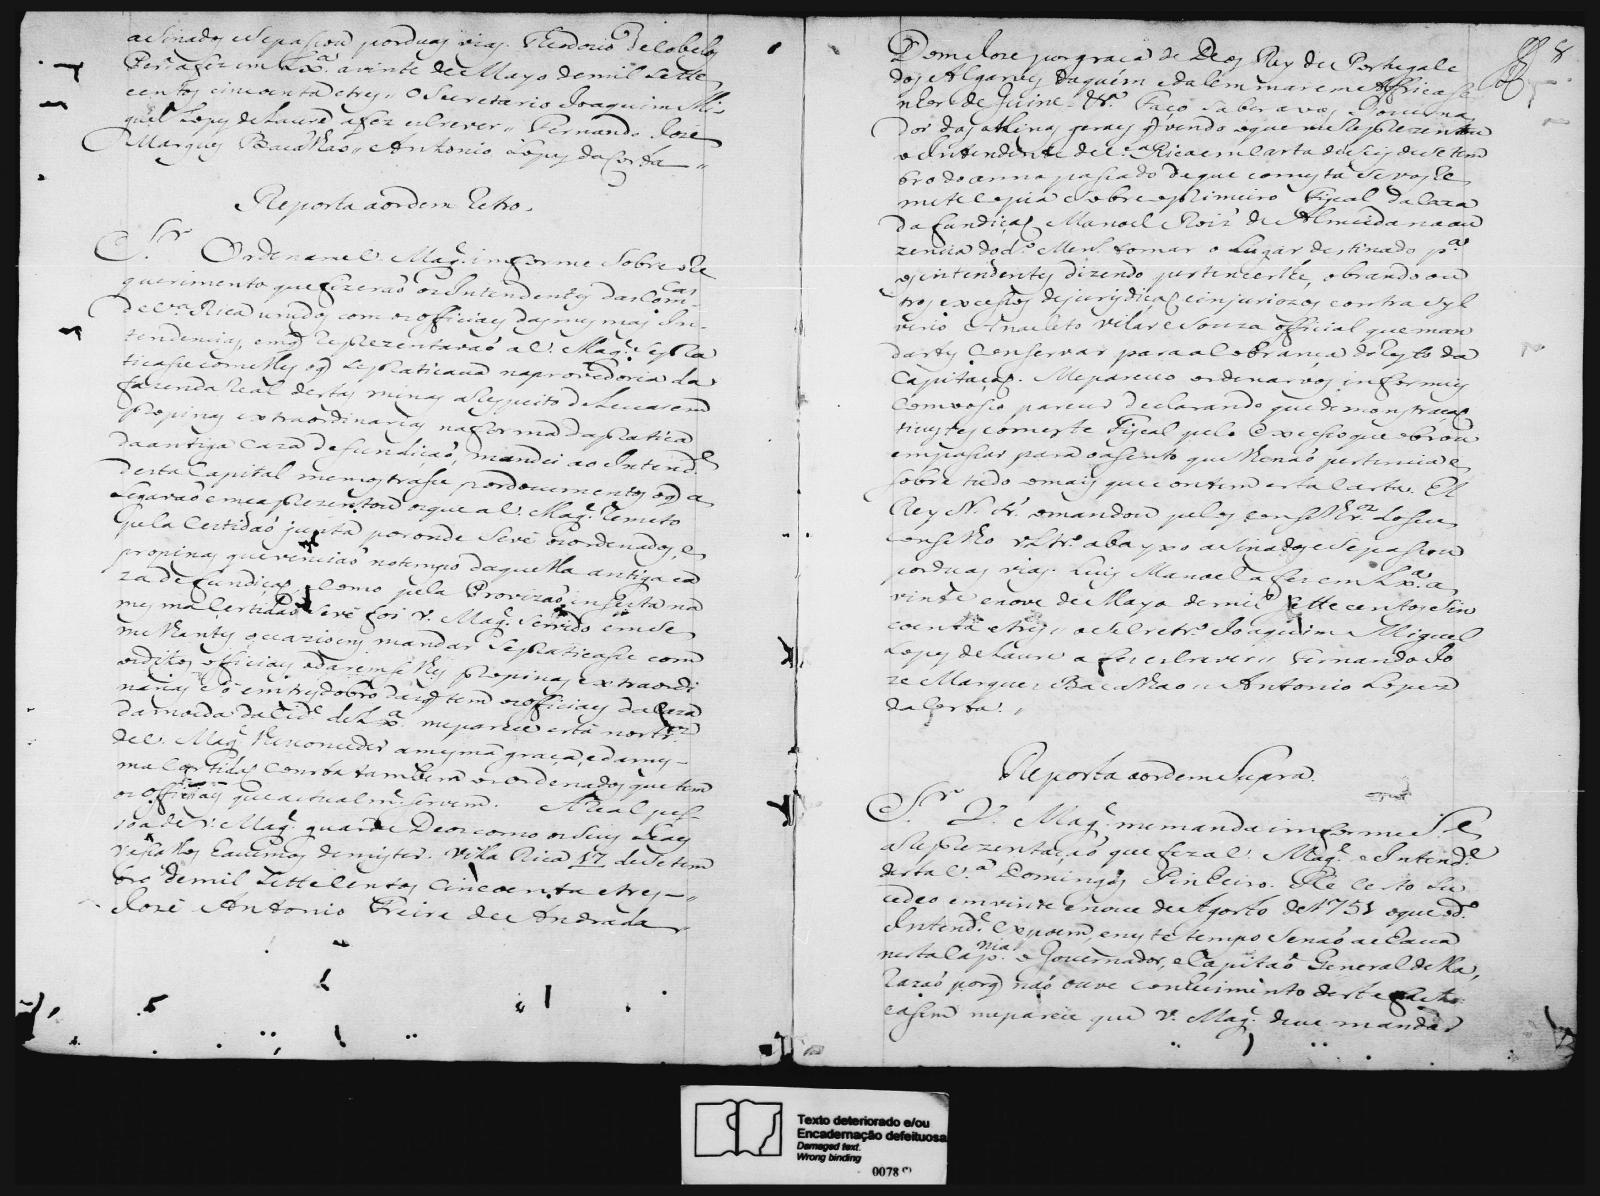 asinados e se pasou por duas vias. Theodozio de Cobelos
Per.ª a fez em Lx.ª a vinte de Mayo de mil sette
centos cincoenta e tres,, O Secretario Joaquim Mi-
guel Lopes de Laure a fez escrever,, Fernando Joze
Marques Bacalhao,, Antonio Lopes da Costa,,
Reposta a ordem Retro.
S.r Ordename V. Mag.e informe sobre o re
querimento que fizeraõ os Intendentes das Com-
cas
de V.ª Rica unidos com os officiaes das mesmas In-
tendencias, em q̃ reprezentavaõ a V. Mag.e se pra
ticase com elles o q̃ se praticava na provedoria da
fazenda Real destas minas a respeito de levarem
propinas extraordinarias na forma da pratica
da antiga caza de fundiçaõ, mandei ao Intend.e
desta Capital me mostrase por documentos o q̃ a
legavaõ e me aprezentou o que a V. Mag.e remeto
pela Certidaõ junta por onde se vê os ordenados, e
propinas que venciaõ no tempo daquella antiga ca
za de fundiçaõ, como pela Provizaõ inserta na
mesma Certidaõ se vê foi V. Mag.e servido em se
melhantes occazioens mandar se praticase com
os ditos officiaes e darem se lhes propinas extraordi
narias e só em tresdobro do q̃ tem os officiaes da Caza
da moeda da Cid.e de Lx.ª me parece está nos tr.os
de V. Mag.e lhe conceder a mesma graça, e da mes-
ma Certidaõ consta tambem os ordenados que tem
os officiaes que actualm.te servem. A Real pes-
soa de V. Mag.e guarde Deos como os seus Leaes
vasallos havemos de mister. Villa Rica 17 de Setem
bro de mil sette centos cincoenta e tres,,
Jozé Antonio Freire de Andrada
8
Dom Joze por graça de Deos Rey de Portugal e
dos Algarves daquem e dalem mar em Affrica Se
nhor de Guine &.ª Faço saber a vos Governa
dor das Minas geraes q̃ vendo o que me reprezentou
o Intendente de V.ª Rica em carta de seis de Setem
bro do anno pasado de que com esta se vos re
mete copia sobre o primeiro Fiscal da caza
da fundiçaõ Manoel Roiz de Almeida na au
zencia do d.º Men.º tomar o Lugar destinado p.ª
os intendentes dizendo pertencerlhe, e obrando ou
tros excesos de jurisdiçaõ e injuriozos contra Syl
verio Anacleto Vilar e Souza official que man
dastes conservar para a cobrança do resto da
Capitaçaõ. Me pareceo ordenarvos informeis
com vosso parecer declarando que demonstraçaõ
tivestes com este Fiscal pelo excesso que obrou
em pasar para o asento que lhe naõ pertencia e
sobre tudo o mais que contem esta carta. El
Rey N. S.r o mandou pelos conselhr.os do seu
conselho Vltr.º abayxo asinados e se pasou
por duas vias. Luis Manoel a fez em Lx.ª a
vinte e nove de Mayo de mil sette centos cin
coenta e tres,, o Secretr.º Joaquim Miguel
Lopes de Laure a fez escrever,, Fernando Jo
ze Marques Bacalhao,, Antonio Lopez
da Costa.,,
Reposta a ordem Supra.
S.r V. Mag.e me manda informe se
a reprezentaçaõ que fez a V. Mag.e o Intend.e
desta V.ª Domingos Pinheiro. He certo su
cedeo em vinte e nove de Agosto de 1751 o que o d.º
Intend.e expoem, e neste tempo senaõ achava
nesta Cap.nia o Governador, e Capitaõ General della,
razaõ porq̃ naõ ouve conhecimento deste facto
e asim me parece que V. Mag.e deve mandar
Texto deteriorado e/ou
Encadernação defeituosa
Damaged text.
Wrong binding
0078 (*)